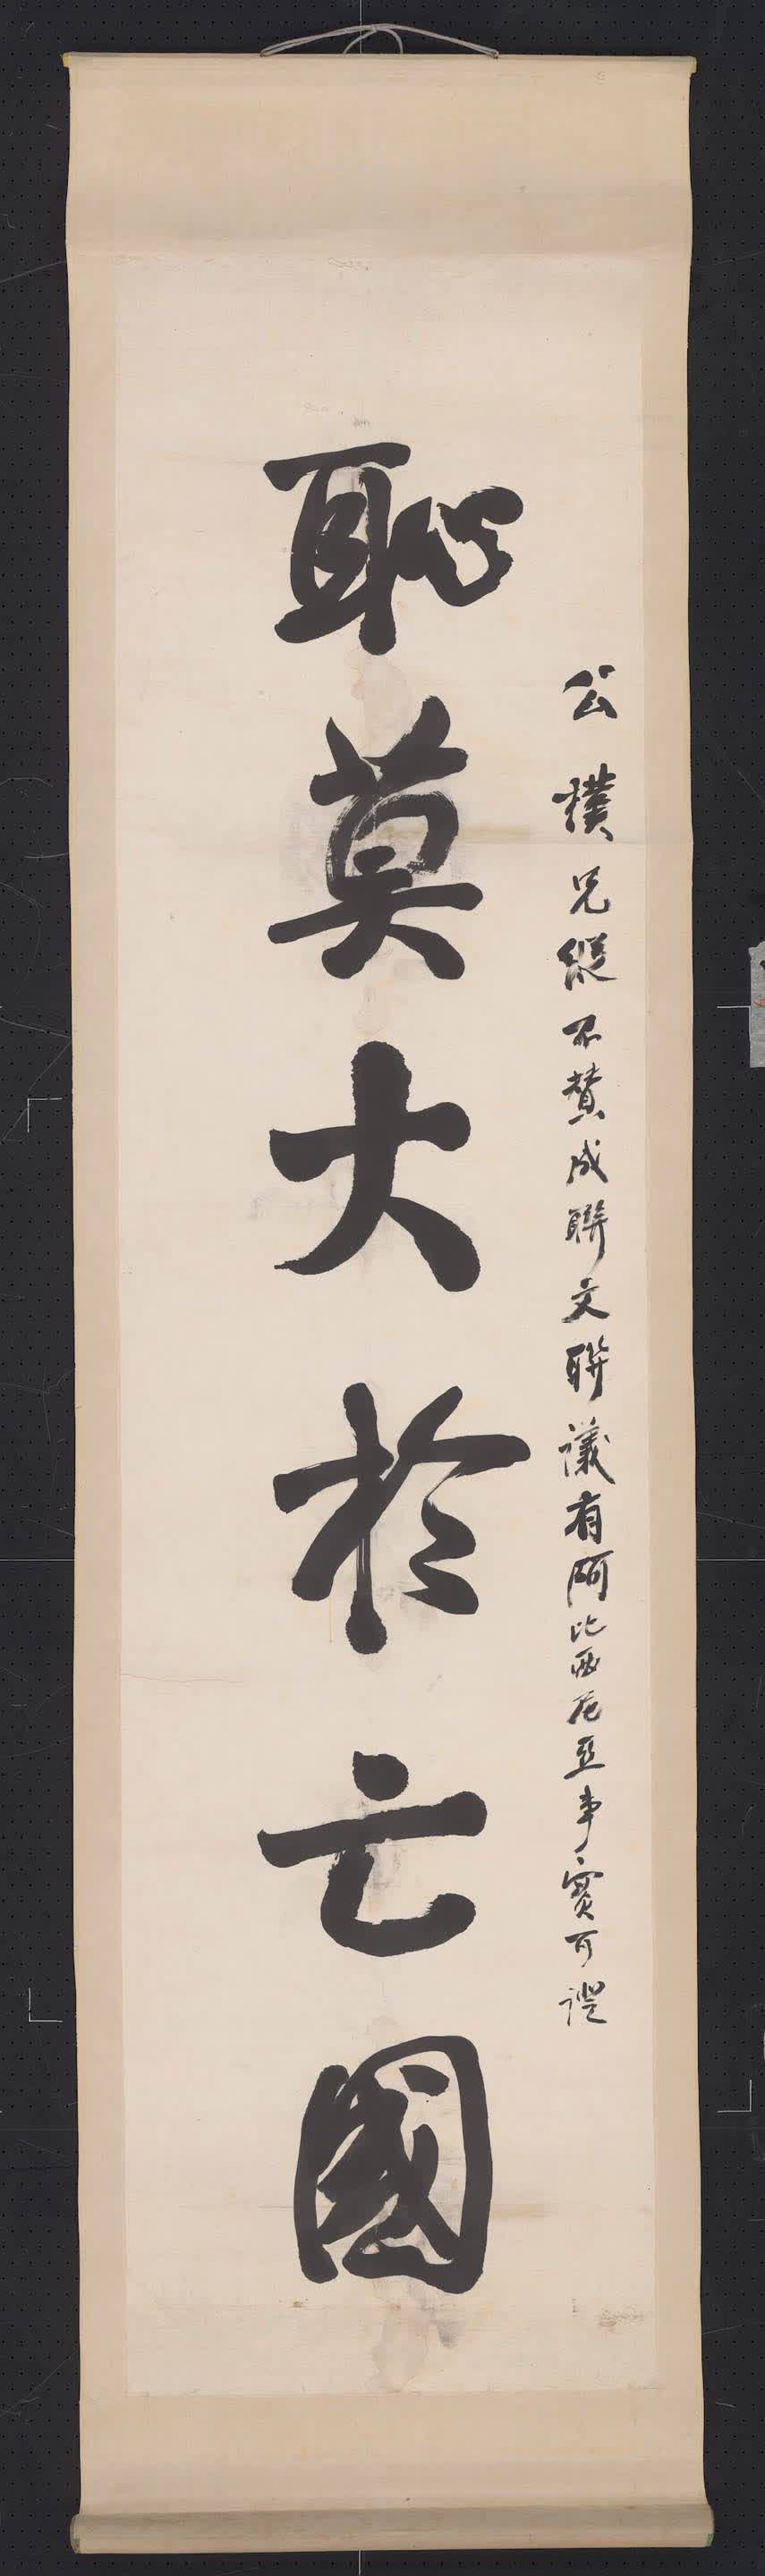 公樸兄縱不贊成聯文聯議有阿比西尼亞事實可證
恥莫大於亡國